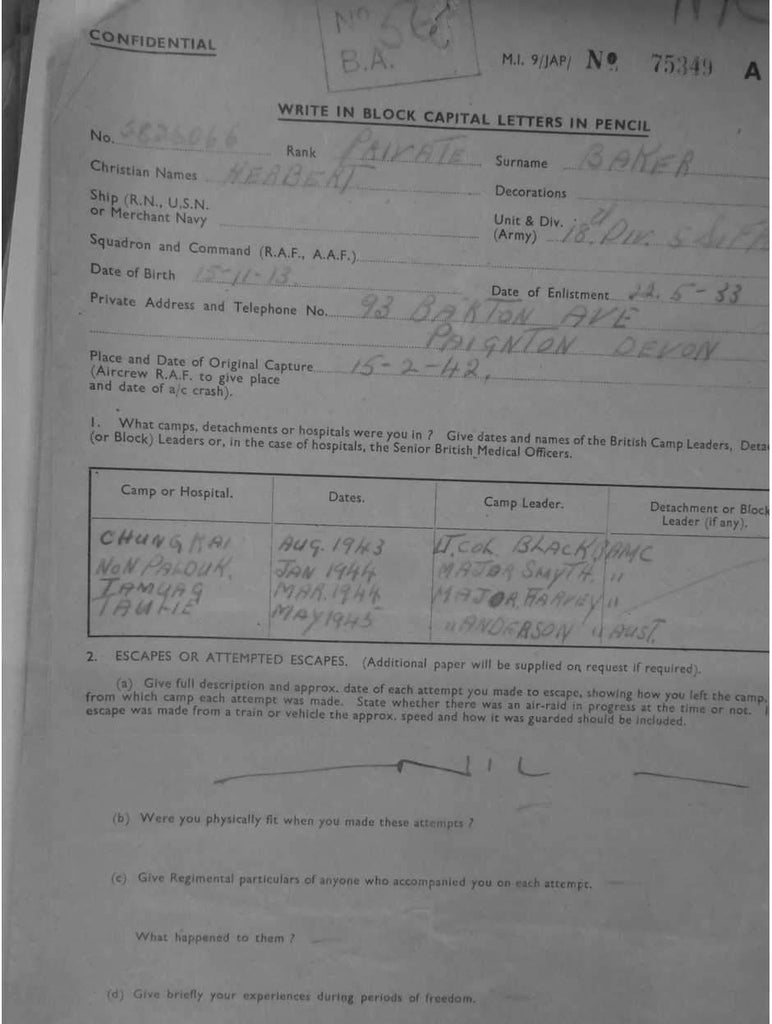 CONFIDENTIAL
No
B.A.
M.I. 9/JAP/ No 75349 A
WRITE IN BLOCK CAPITAL LETTERS IN PENCIL
No. 5826066 Rank PRIVATE Surname BAKER
Christian Names HERBERT Decorations
Ship (R.N., U.S.N.
or Merchant Navy
Unit & Div. 18 DIV. 5 SUFF
(Army)
Squadron and Command (R.A.F., A.A.F.)
Date of Birth 15-11-13. Date of Enlistment 22.5-33
Private Address and Telephone No. 93 BARTON AVE
PAIGNTON DEVON
Place and Date of Original Capture 15-2-42.
(Aircrew R.A.F. to give place
and date of a/c crash).
1. What camps, detachments or hospitals were you in ? Give dates and names of the British Camp Leaders, Deta
(or Block) Leaders or, in the case of hospitals, the Senior British Medical Officers.
Camp or Hospital. Dates. Camp Leader. Detachment or Block
Leader (if any).
CHUNGKAI AUG. 1943 LT. COL. BLACK RAMC
NON PALDUK. JAN 1944 MAJOR SMYTH. "
TAMUAG MAR. 1944 MAJOR HARVEY "
MAY 1945 " ANDERSON " AUST.
2. ESCAPES OR ATTEMPTED ESCAPES. (Additional paper will be supplied on request if required).
(a) Give full description and approx. date of each attempt you made to escape, showing how you left the camp,
from which camp each attempt was made. State whether there was an air-raid in progress at the time or not. I
escape was made from a train or vehicle the approx. speed and how it was guarded should be included.
NIL
(b) Were you physically fit when you made these attempts ?
(c) Give Regimental particulars of anyone who accompanied you on each attempt.
What happened to them ?
(d) Give briefly your experiences during periods of freedom.